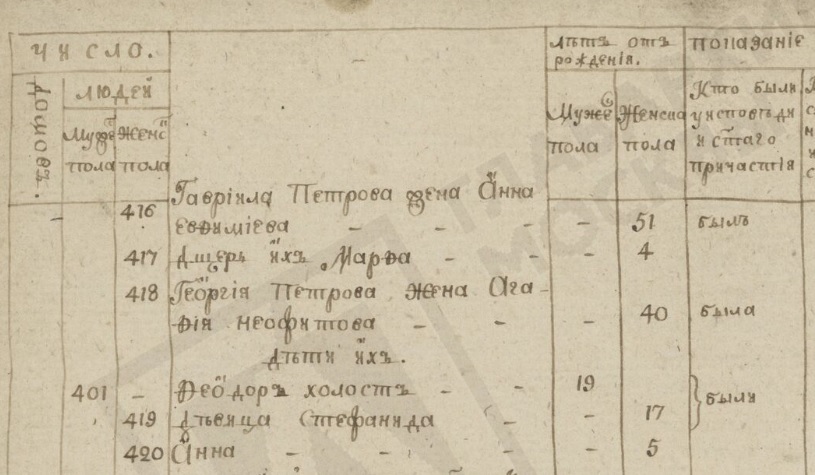 число.
лѣтъ отъ рожденія.
показаніе
домовъ.
людей
Муже пола
Женс пола
Муже пола
Женска пола
Кто были у исповѣди и с͠таго причастія
416 Гавріила Петрова жена Анна
Евѳиміева – – – – 51 былъ
417 дщерь ихъ Марѳа – – – 4
418 Георгія Петрова жена Ага-
ѳія неофитова – – – 40 была
дѣти ихъ.
401 – Ѳеодоръ холостъ – – 19
были
419 дѣвица Стефанида – – 17
420 Анна – – – – 5